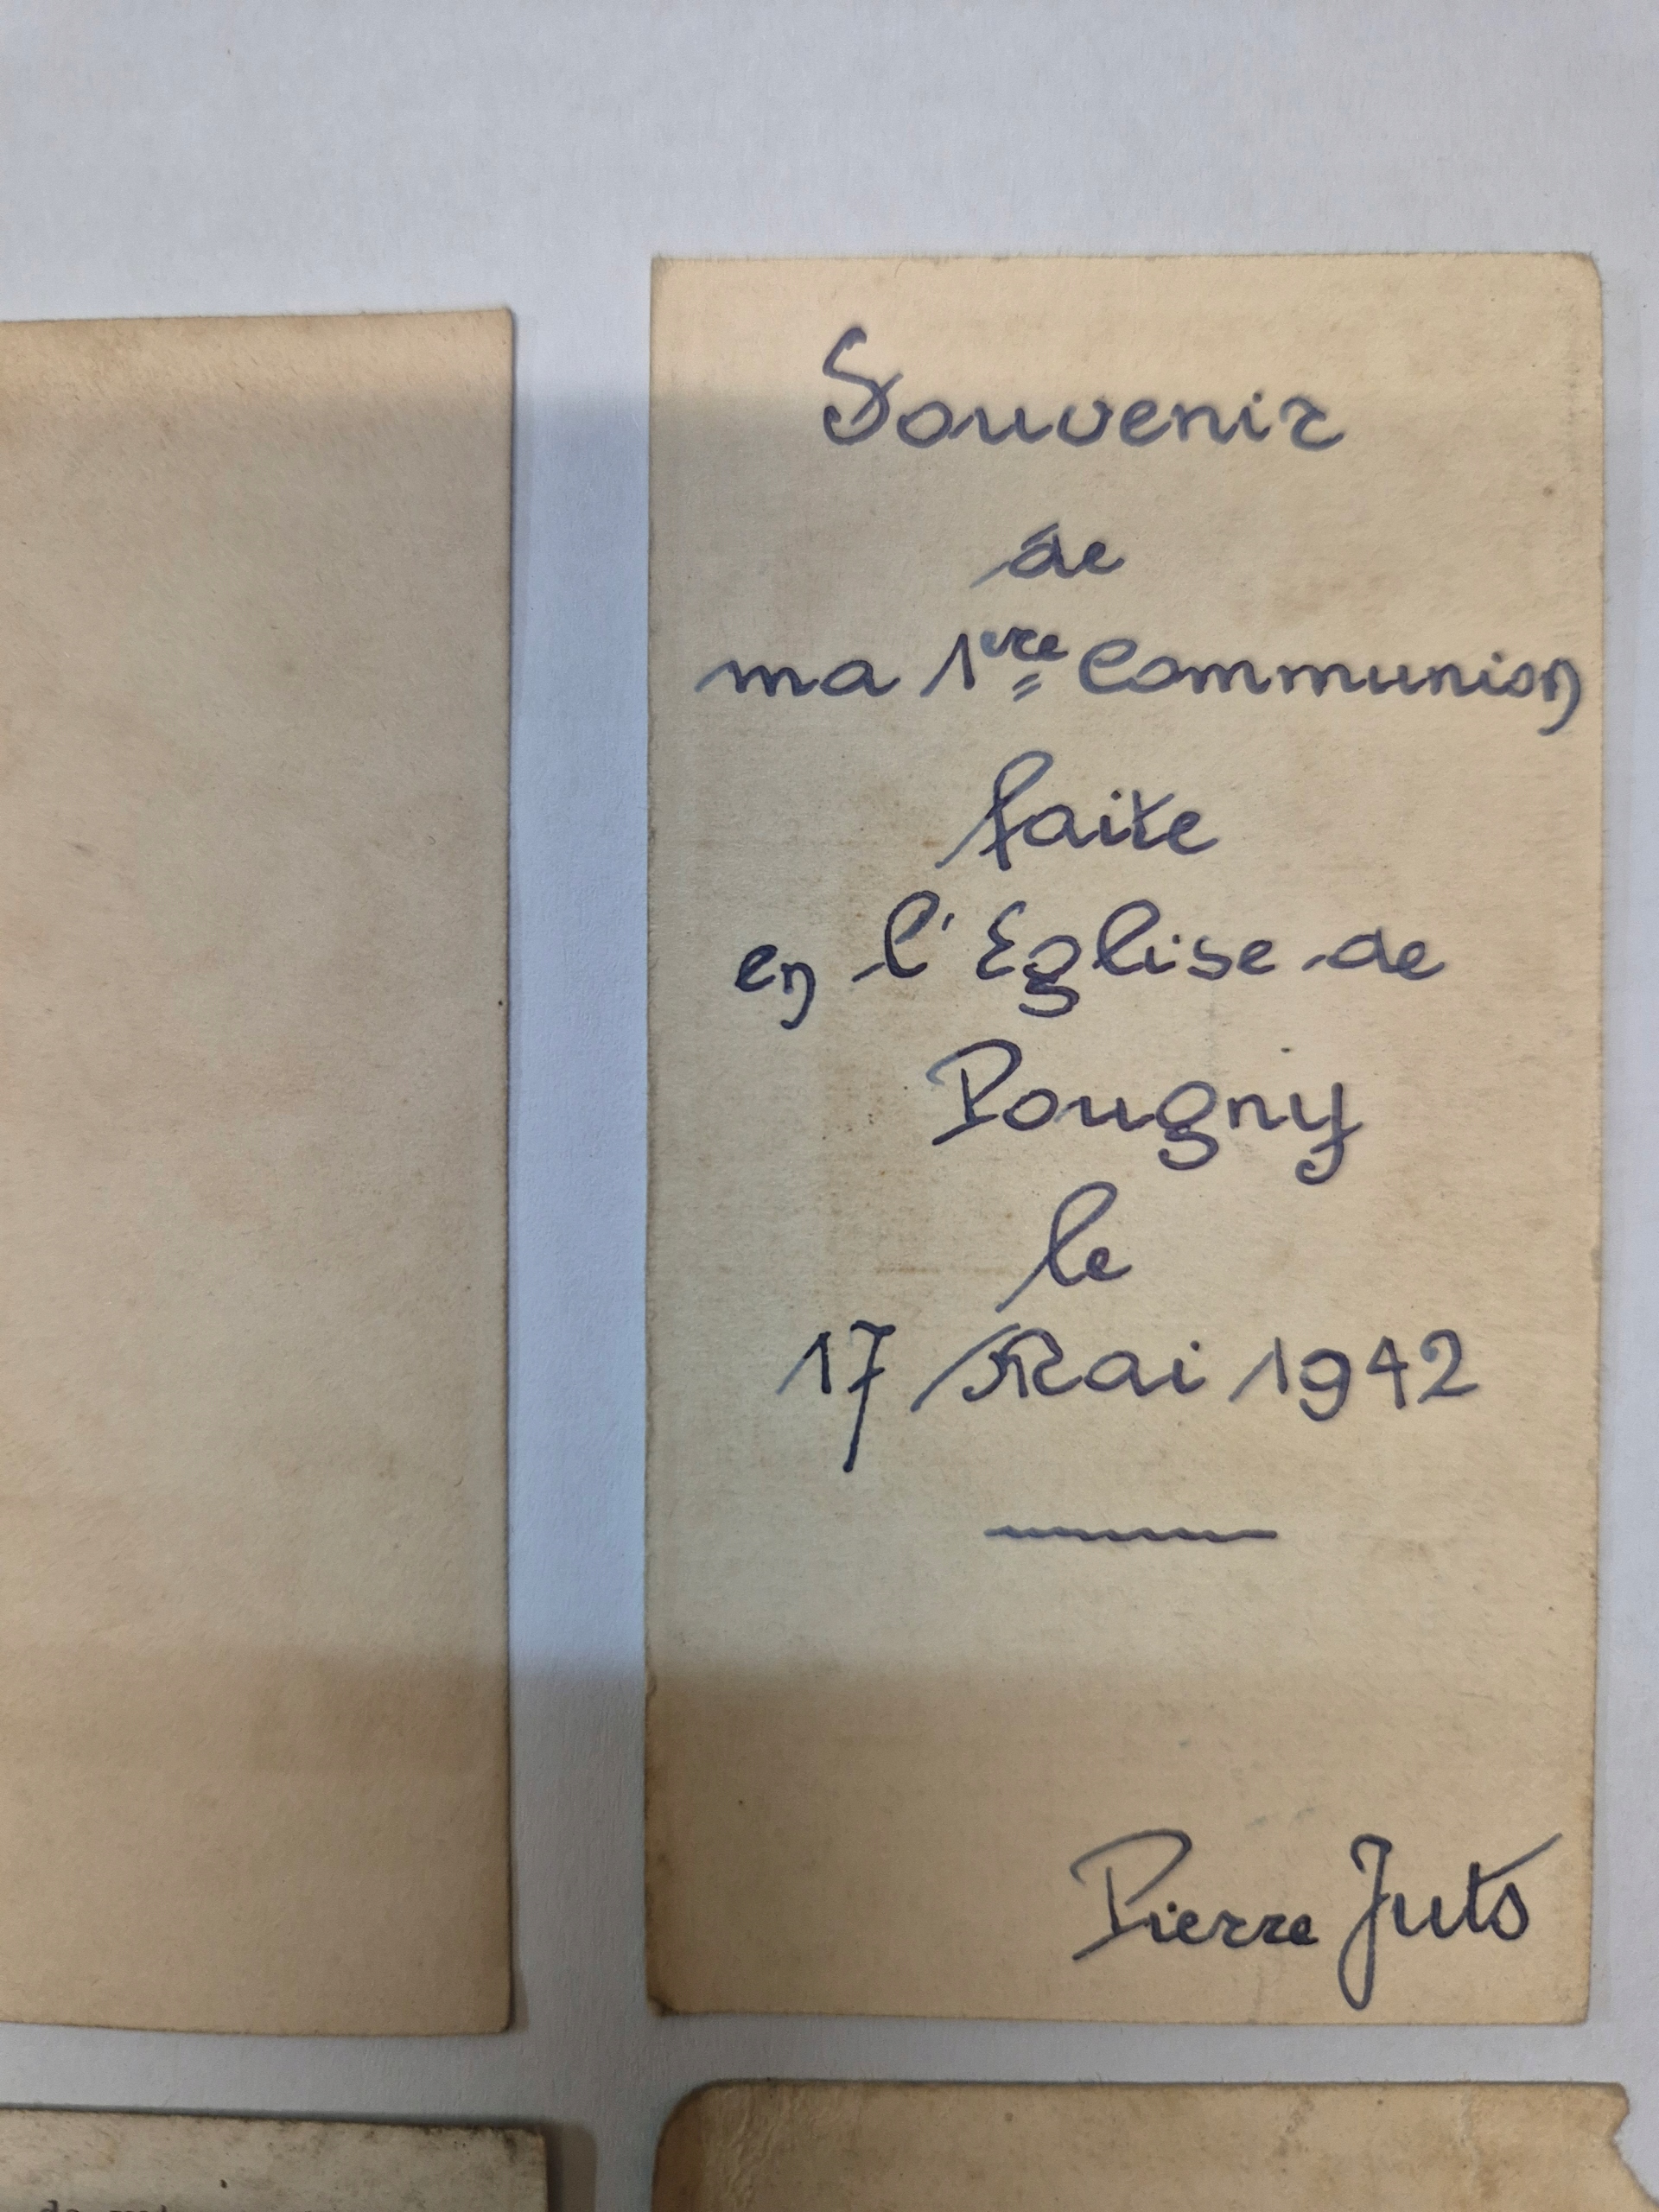 Souvenir
de
ma 1ere Communion
faite
en l'Eglise de
Pougny
le
17 Mai 1942
Pierre Juts